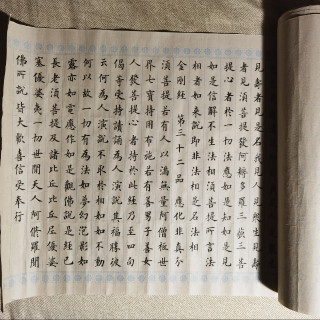 見壽者見是名我見人見眾生見壽
者見須菩提發阿耨多羅三藐三菩
提心者於一切法應如是知如是見
如是信解不生法相須菩提所言法
相者如來說即非法相是名法相
金剛經 第三十二品 應化非真分
須菩提若有人以滿無量阿僧祇世
界七寶持用布施若有善男子善女
人發菩提心者持於此經乃至四句
偈等受持讀誦為人演說其福勝彼
云何為人演說不取於相如如不動
何以故一切有為法如夢幻泡影如
露亦如電應作如是觀佛說是經已
長老須菩提及諸比丘比丘尼優婆
塞優婆夷一切世間天人阿脩羅聞
佛所說皆大歡喜信受奉行